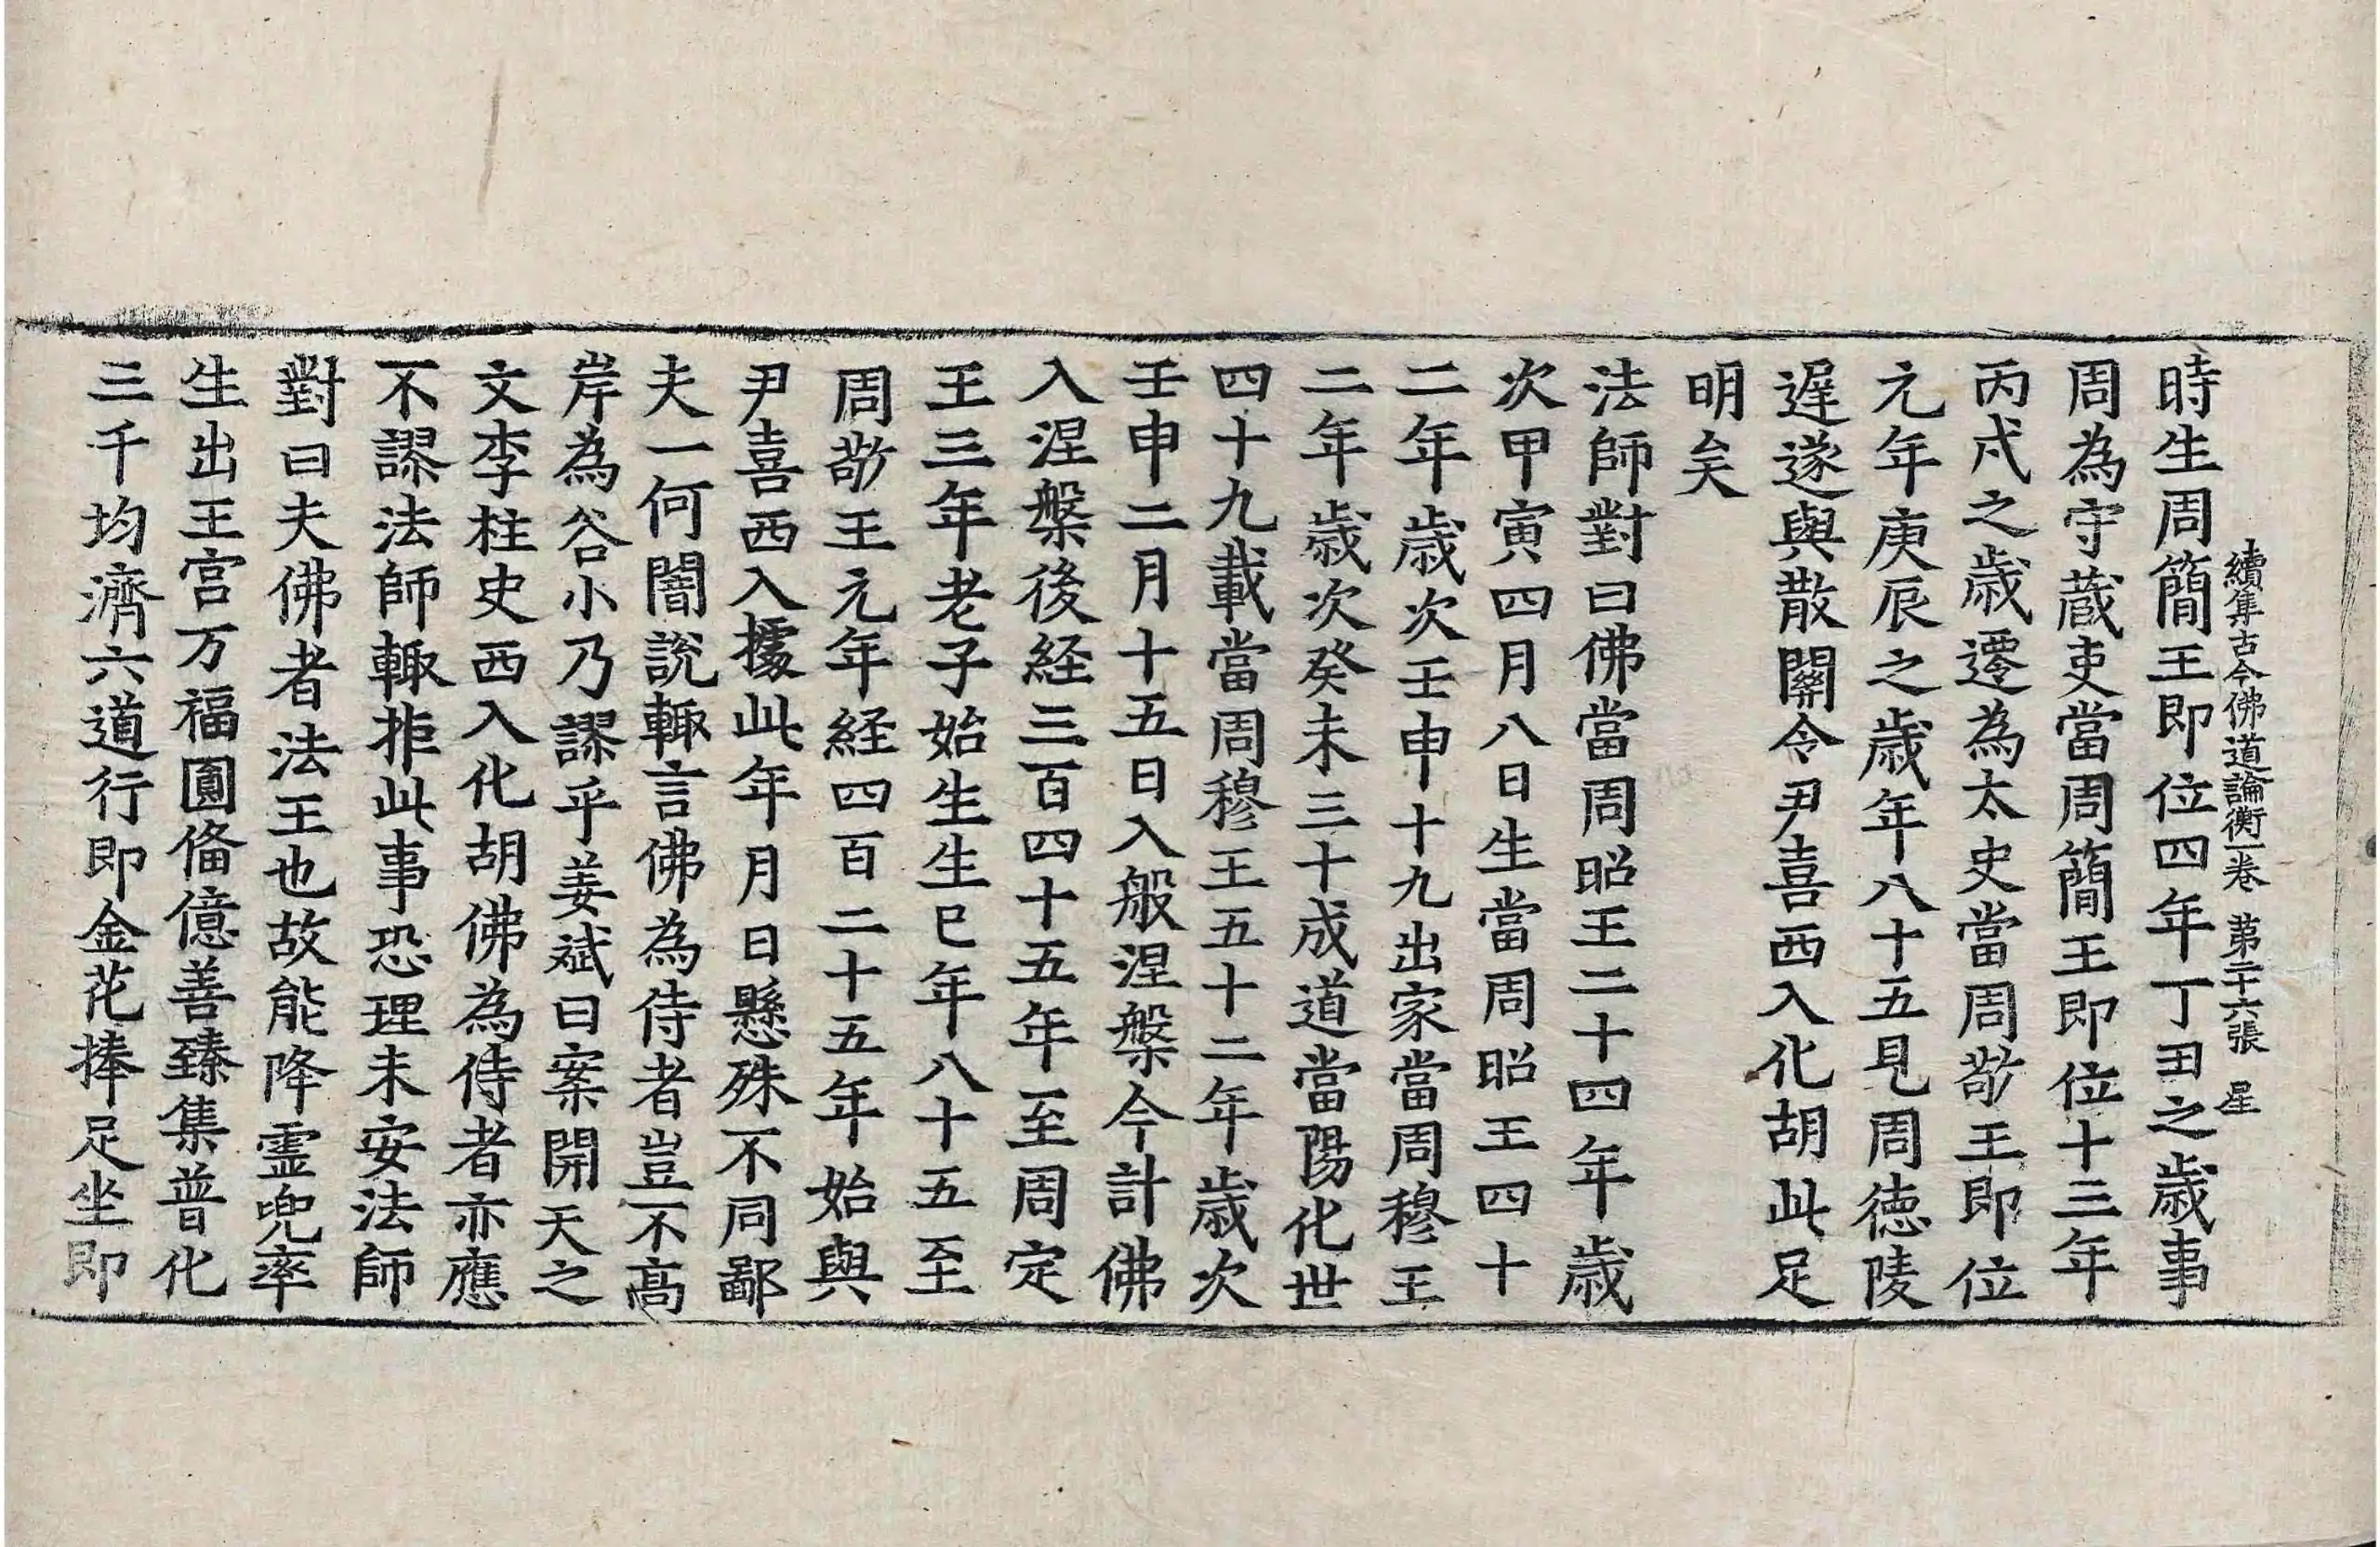 續集古今佛道論衡一卷 第二十六張 星
時生周簡王即位四年丁丑之歲事
周為守藏吏當周簡王即位十三年
丙戌之歲遷為太史當周敬王即位
元年庚辰之歲年八十五見周德陵
遲遂與散關令尹喜西入化胡此足
明矣
法師對曰佛當周昭王二十四年歲
次甲寅四月八日生當周昭王四十
二年歲次壬申十九出家當周穆王
二年歲次癸未三十成道當陽化世
四十九載當周穆王五十二年歲次
壬申二月十五日入般涅槃今計佛
入涅槃後経三百四十五年至周定
王三年老子始生生已年八十五至
周敬王元年経四百二十五年始與
尹喜西入據此年月日懸殊不同鄙
夫一何闇說輙言佛為侍者豈不高
岸為谷小乃謬乎姜斌曰案開天之
文李柱史西入化胡佛為侍者亦應
不謬法師輙拒此事恐理未安法師
對曰夫佛者法王也故能降霊兜率
生出王宮万福圓俻億善臻集普化
三千均濟六道行即金花捧足坐即